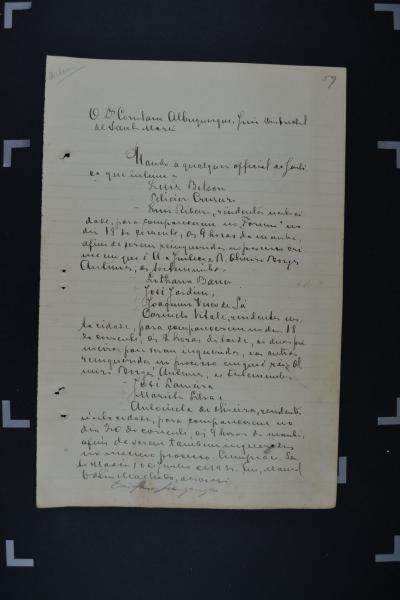 59
O Dr Coriolano Albuquerque, Juiz districtal
de Santa Maria
Mando a qualquer official de Justi-
ça que intime a
Luiz Bolson
Felicio
Luiz Ribeiro, residentes nesta ci-
dade, para comparecerem no "Forum" no
dia 18 do corrente, ás 9 horas da manhã,
afim de serem reinqueridas no processo cri-
me em que é A a Justiça e R. Olmiro Borges
Antunes, os
José Jardim,
Joaquim Vieo de Sá
Cornelo Vitale, residentes nes-
ta cidade, para comparecerem no dia 18
do corrente, ás 2 horas da tarde, os dous pri-
meiros para serem inqueridos, e os outros
reinqueridos no processo em que é réo Ol-
miro Borges Antunes, as testemunhas
José
Antonieta de Oliveira, residentes
nesta cidade, para comparecerem no
dia 20 do corrente, ás 9 horas da manhã,
afim de serem tambem inqueridas
no mesmo processo. Cumpra-se. San-
ta Maria, 10 de Junho de 1931. Eu,
Machado, escrivão